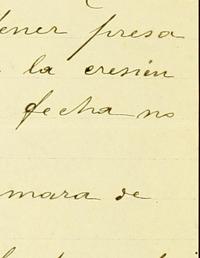 ener presa
la cresien
fecha no
mara de